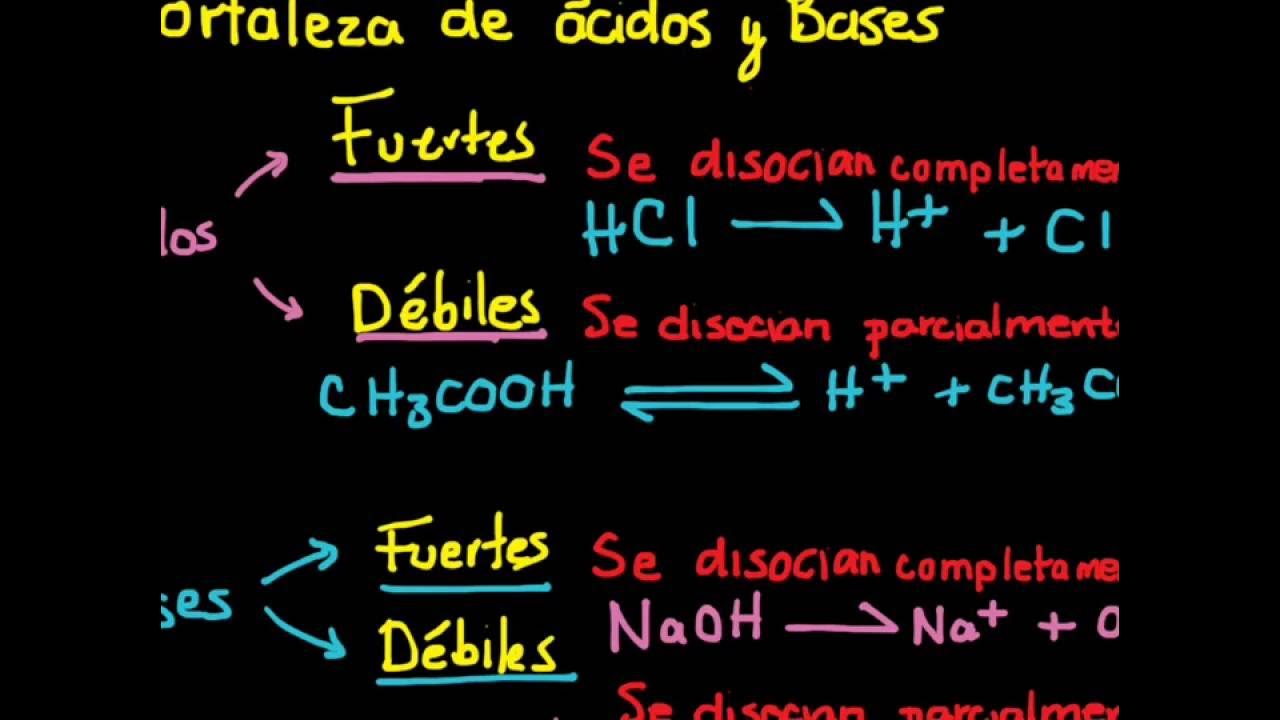 ortaleza de ácidos y Bases
Fuertes Se disocian completamen
HCl → H+ + Cl
los
Débiles Se disocian parcialment
CH3COOH ⇌ H+ + CH3C
Fuertes Se disocian completame
ses
NaOH → Na+ + O
Débiles
Se disocian parcialmen